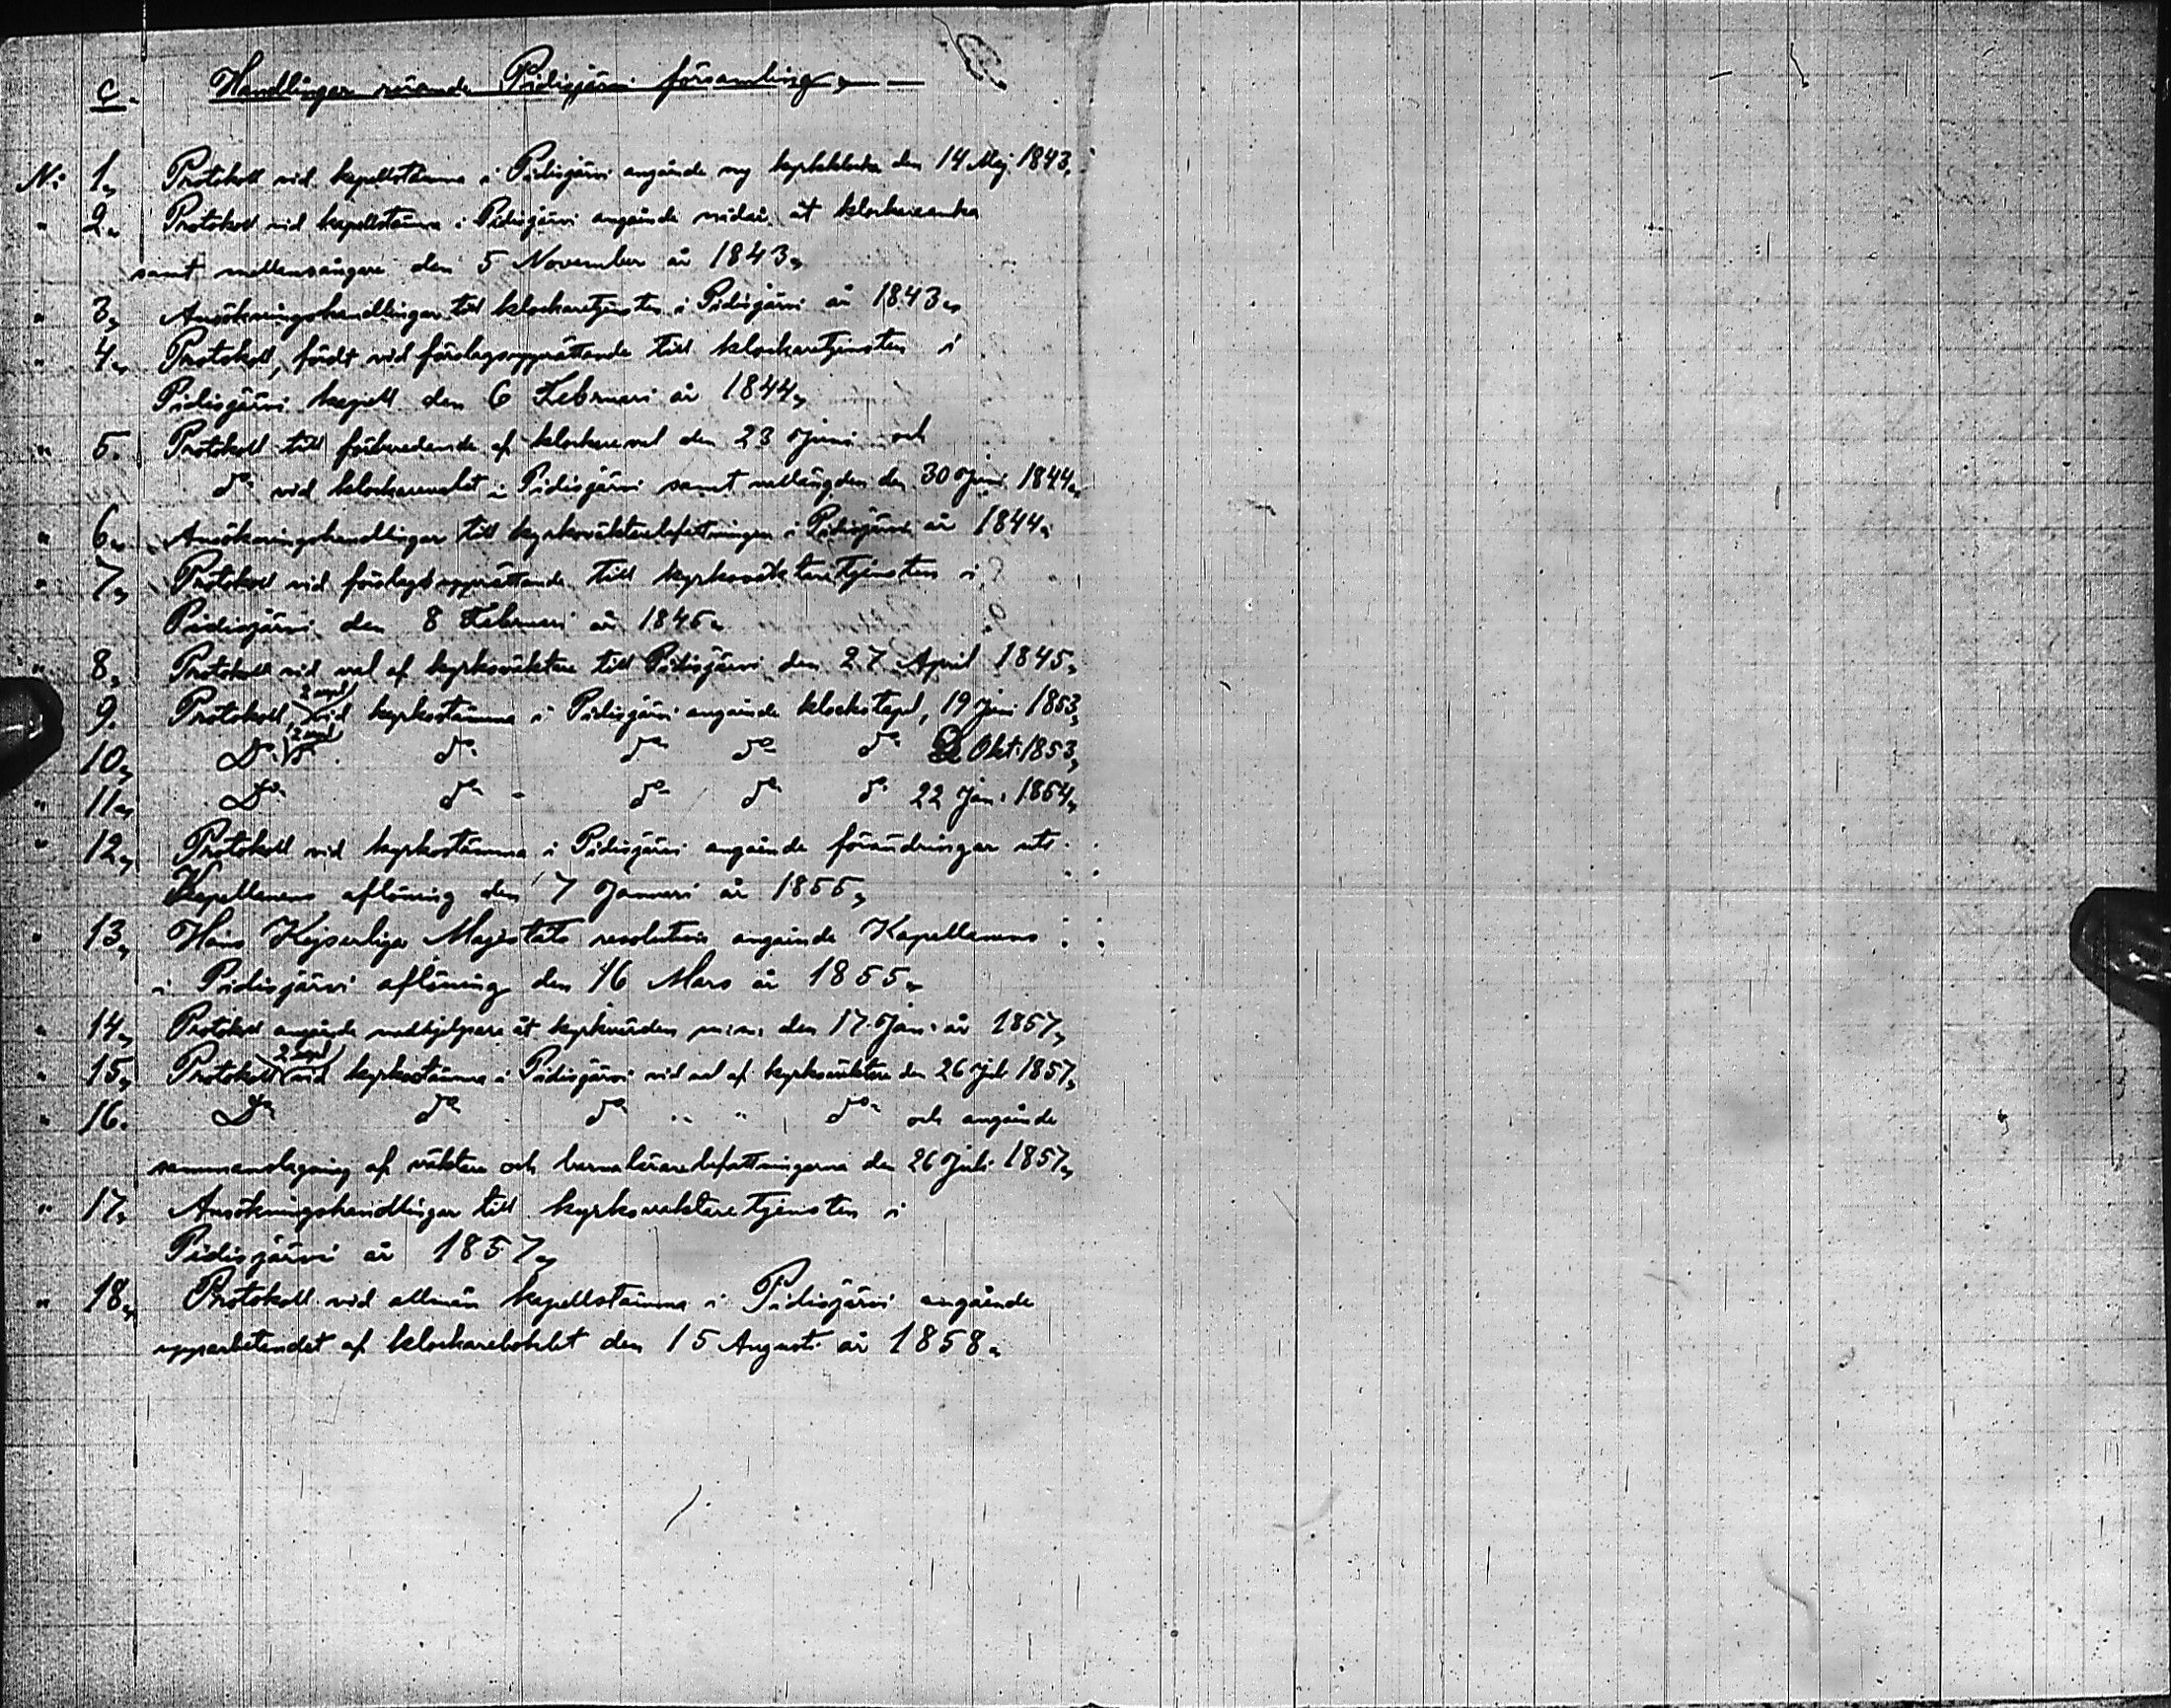 C. Handlingar rörande Pidisjärvi församling
N: 1, Protokoll vid kapellstämma i Pidisjärvi angående ny kyrkklocka den 14 Maj 1843,
" 2, Protokoll vid kapellstämma i Pidisjärvi angående nådår åt klockareenka
samt mellansångare den 5 November år 1843,
" 3, Ansökningshandlingar till klockaretjensten i Pidisjärvi år 1843,
" 4, Protokoll, fördt vid förslagsupprättande till klockaretjensten i
Pidisjärvi kapell den 6 Februari år 1844,
" 5. Protokoll till förberedande af klockareval den 23 Juni och
do vid klockarevalet i Pidisjärvi samt vallängden den 30 Juni 1844,
" 6, Ansökningshandlingar till kyrkoväktarebefattningen i Pidisjärvi år 1844,
" 7, Protokoll vid förslagsupprättande till kyrkoväktaretjensten i
Pidisjärvi den 8 Februari år 1845,
" 8, Protokoll vid val af kyrkoväktare till Pidisjärvi den 27 April 1845,
9. Protokoll, 2 expl vid kyrkostämma i Pidisjärvi angående klockstapel, 19 Juni 1853,
10, Do 2 expl do do do do do 2 Okt. 1853,
" 11, Do do do do do 22 Jan. 1854,
" 12, Protokoll vid kyrkostämma i Pidisjärvi angående förändringar uti
Kapellanens aflöning den 7 Januari år 1855,
" 13, Hans Kejserliga Majestäts resolution angående Kapellanens
i Pidisjärvi aflöning den 16 Mars år 1855,
" 14, Protokoll angående medhjelpare åt kyrkvärden m.m. den 17 Jan. år 1857,
" 15, Protokoll 2 expl vid kyrkostämma i Pidisjärvi vid val af kyrkoväktare den 26 Juli 1857,
" 16. Do do do " " do och angående
sammanslagning af väktare och barnalärarebefattningarna den 26 Juli 1857,
" 17, Ansökningshandlingar till kyrkovaktaretjensten i
Pidisjärvi år 1857,
" 18, Protokoll vid allmän kapellstämma i Pidisjärvi angående
upparbetandet af klockarebohlet den 15 Augusti år 1858,